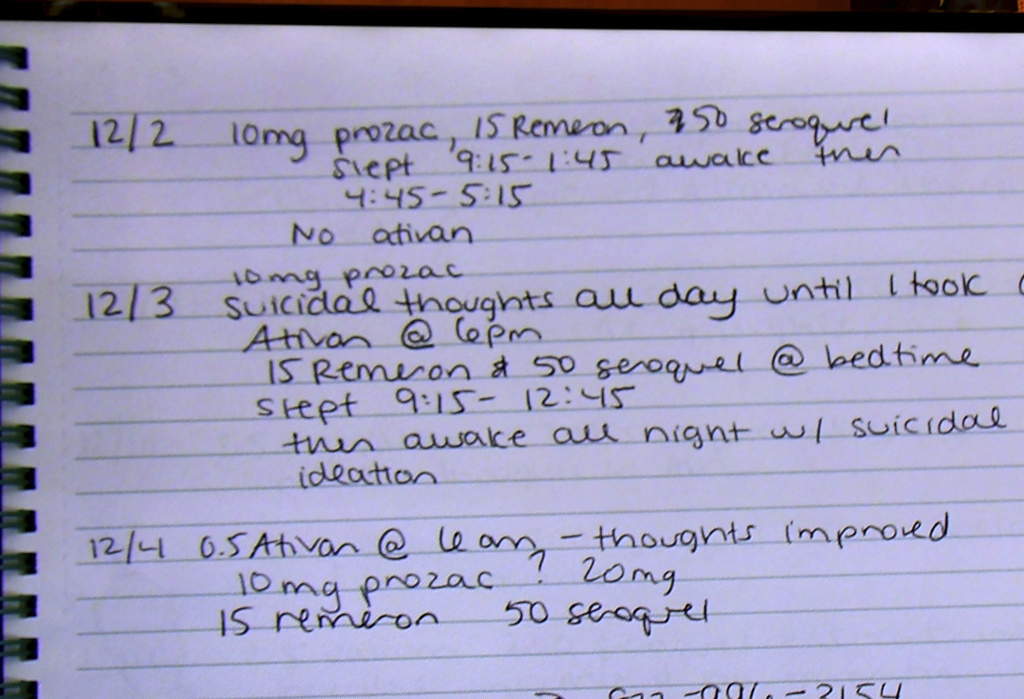 12/2 10mg prozac, 15 Remeron, 50 seroquel
slept 9:15-1:45 awake then
4:45-5:15
No ativan
10mg prozac
12/3 suicidal thoughts all day until I took
Ativan @ 6pm
15 Remeron & 50 seroquel @ bedtime
slept 9:15- 12:45
then awake all night w/ suicidal
ideation
12/4 0.5 Ativan @ 6am, - thoughts improved
10mg prozac ? 20mg
15 remeron 50 seroquel
-2154